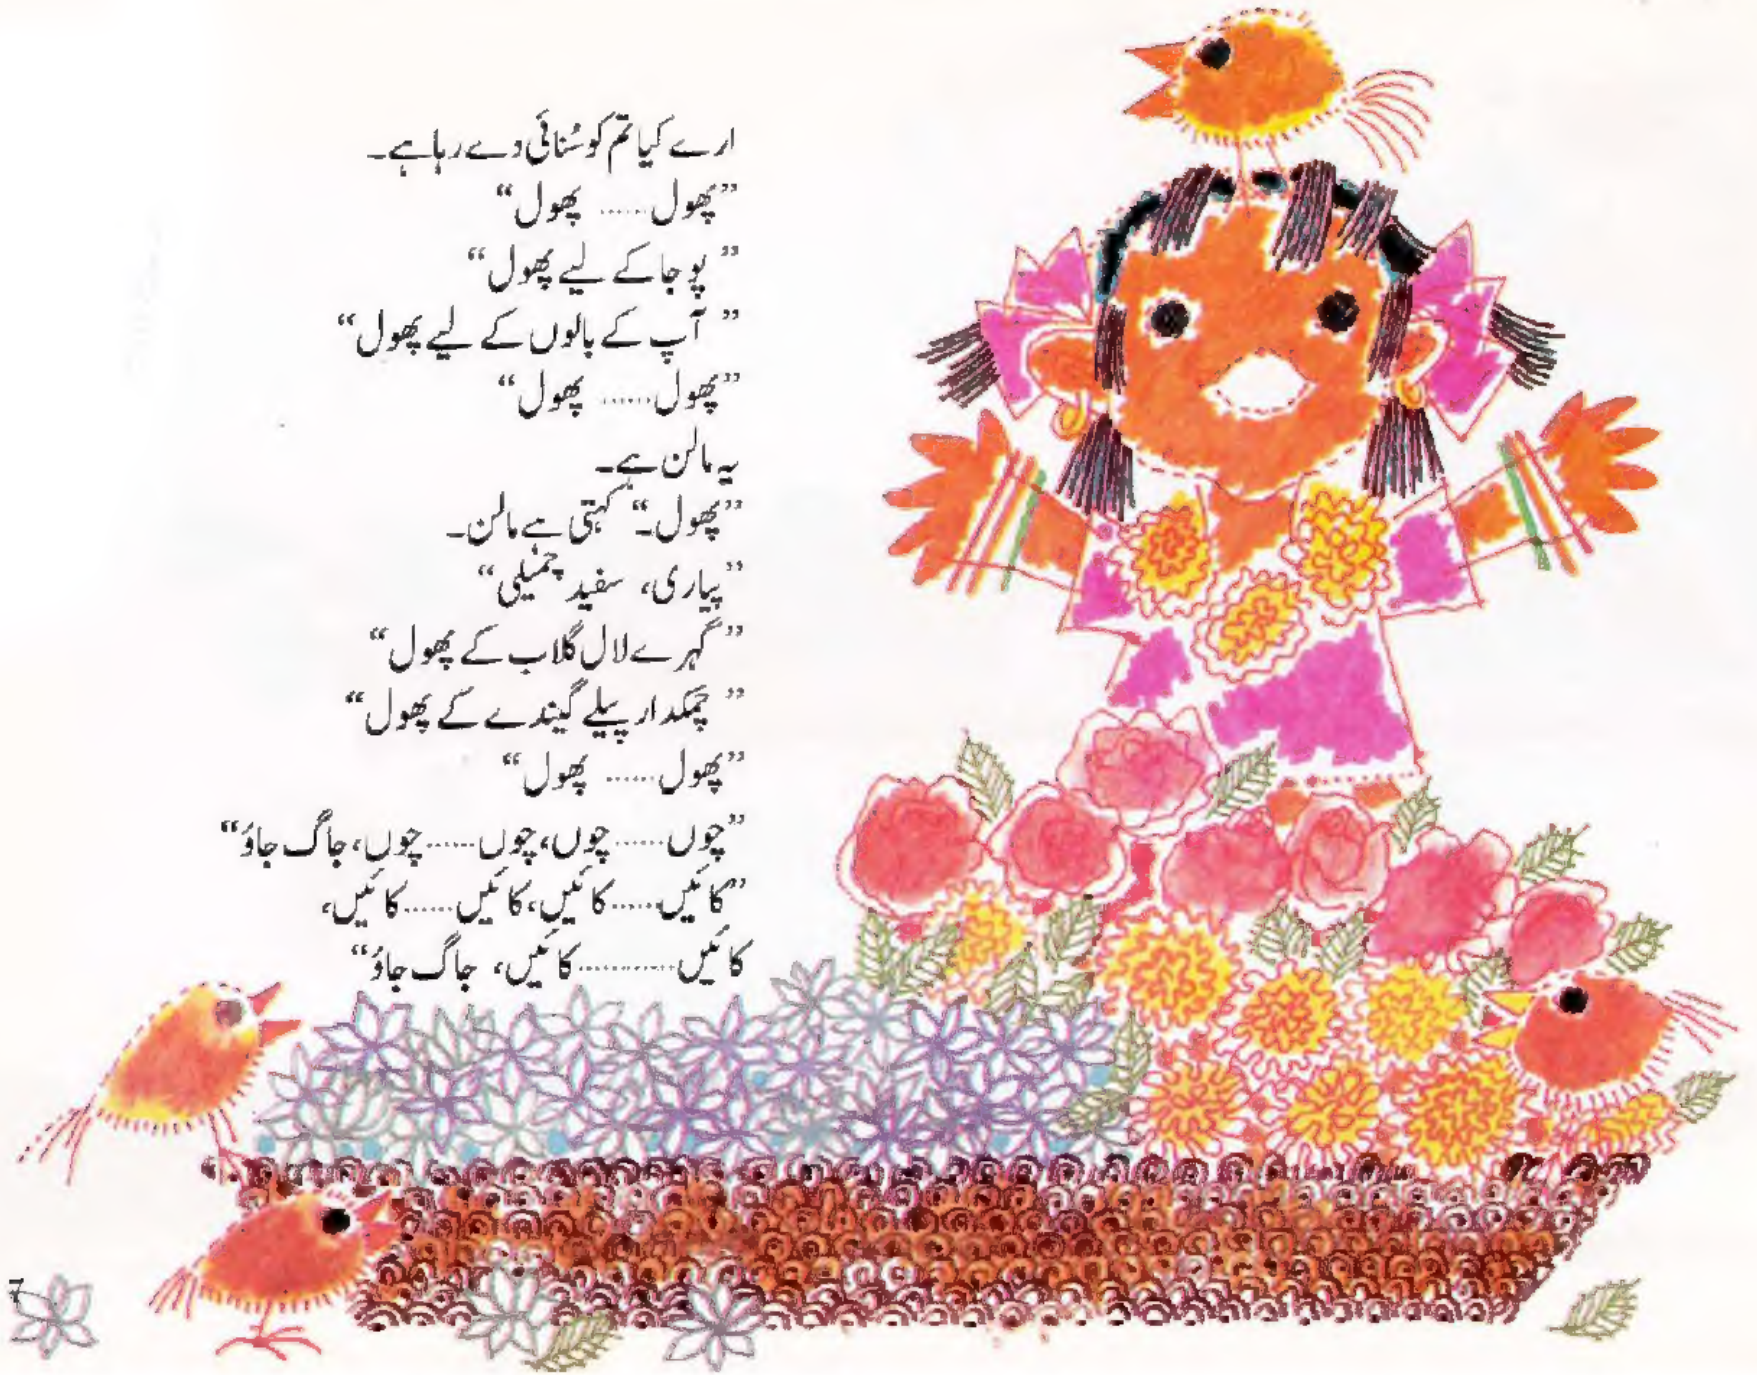 ارے کیا تم کو سُنائی دے رہا ہے۔
”پھول...... پھول“
”پوجا کے لیے پھول“
”آپ کے بالوں کے لیے پھول“
”پھول...... پھول“
یہ مالن ہے۔
”پھول۔“ کہتی ہے مالن۔
”پیاری، سفید چمیلی“
”گہرے لال گلاب کے پھول“
”چمکدار پیلے گیندے کے پھول“
”پھول...... پھول“
”چوں...... چوں، چوں...... چوں، جاگ جاؤ“
”کائیں...... کائیں، کائیں...... کائیں،
کائیں............ کائیں، جاگ جاؤ“
7